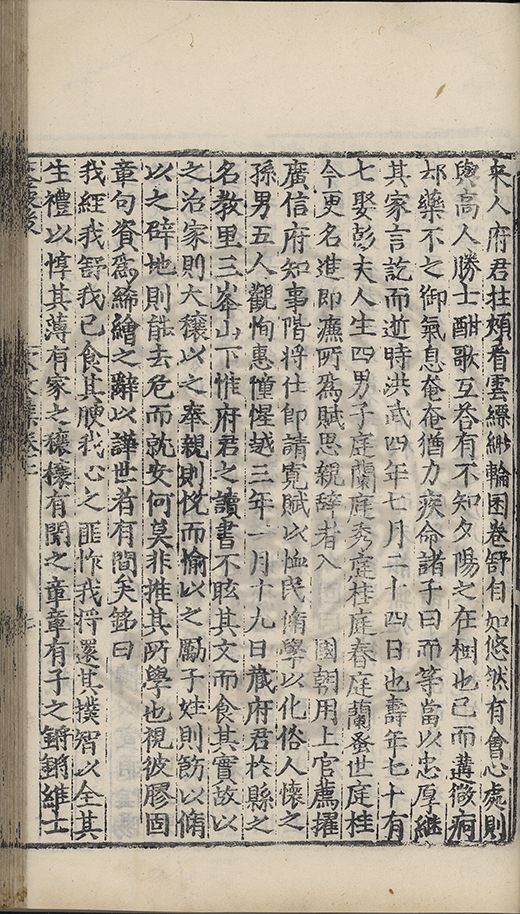 來人府君拄頰看雲縹緲輪囷卷舒自如悠然有會心處則
與高人勝士酣歌互荅有不知夕陽之在樹也已而遘微痾
却藥不之御氣息奄奄猶力疾命諸子曰而等當以忠厚継
其家言訖而逝時洪武四年七月二十四日也壽年七十有
七娶彭夫人生四男子庭蘭庭秀庭桂庭春庭蘭蚤世庭桂
今更名進即薦所為賦思親辞者入 國朝用上官薦擢
廣信府知事階将仕郎請寛賦以恤民脩學以化俗人懷之
孫男五人觀恂惠憧惺越三年一月十九日藏府君於縣之
名教里三峯山下惟府君之讀書不眩其文而食其實故以
之治家則大穰以之奉親則恱而愉以之勵子姓則飭以脩
以之辟地則能去危而就安何莫非推其所學也視彼膠固
章句資為絺繪之辭以譁世者有間矣銘曰
我經我舒我已食其腴我心之匪怍我将還其撲智以全其
生禮以惇其薄有家之穰穰有聞之章章有子之鏘鏘維士